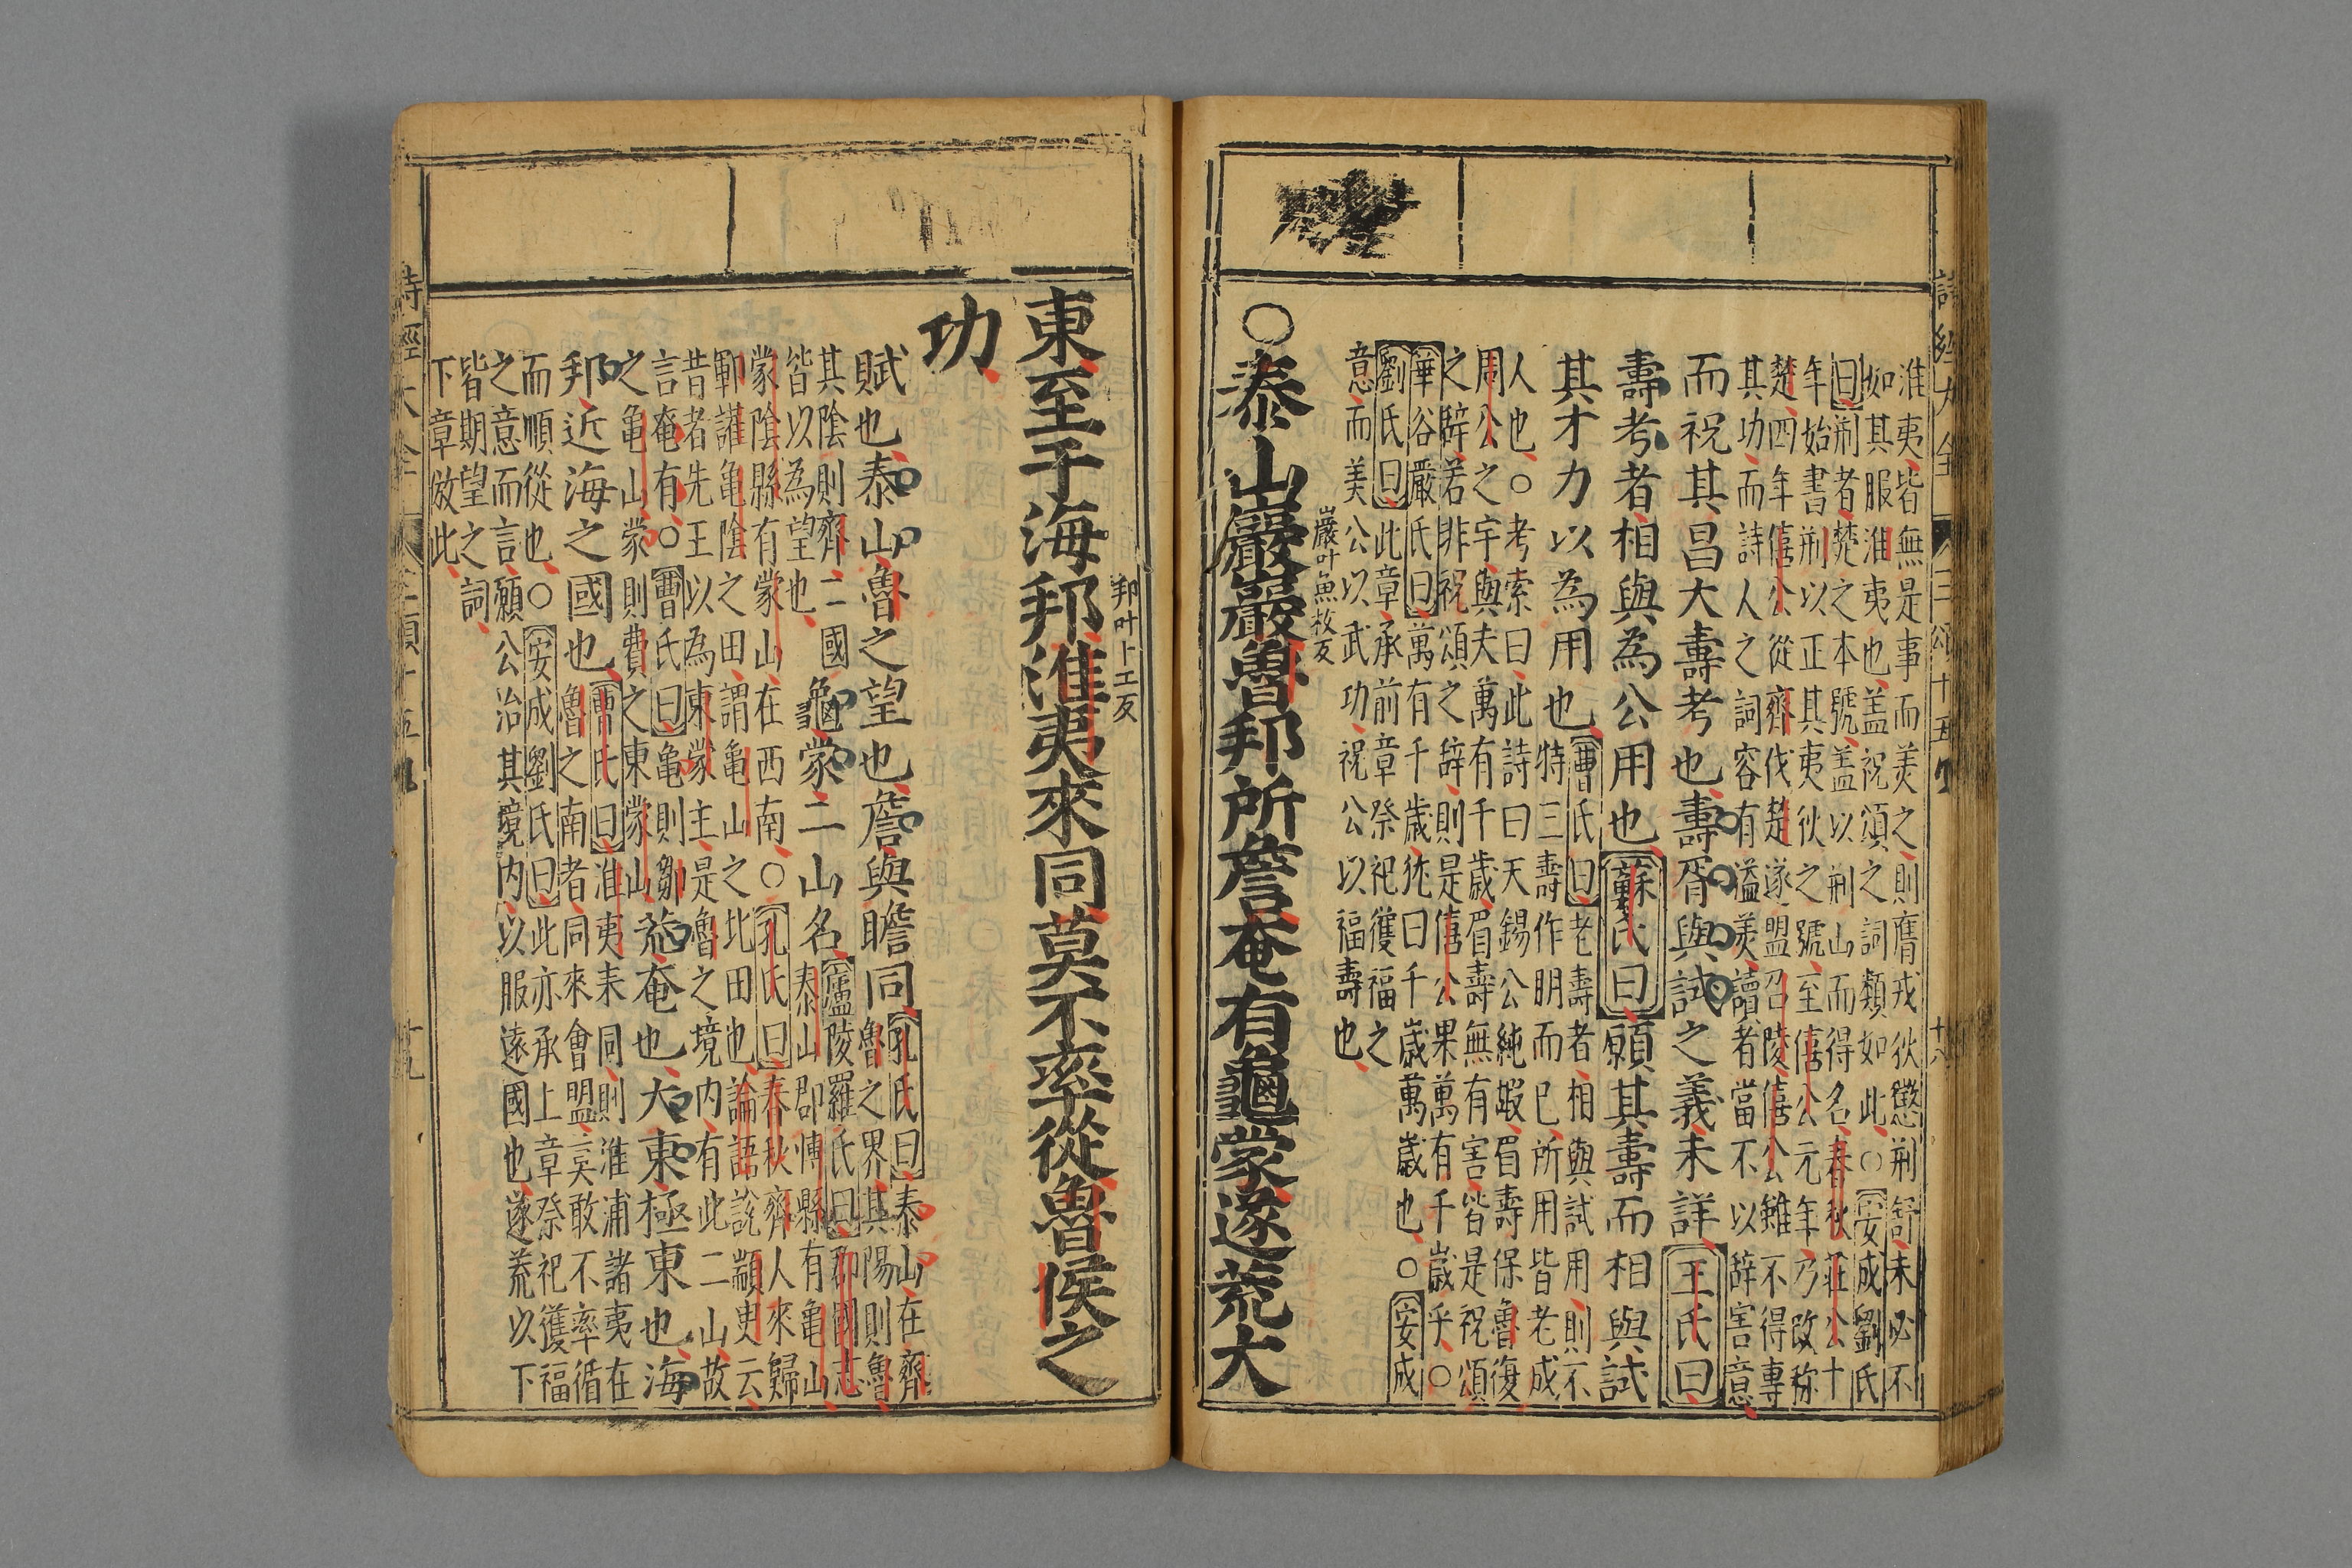 淮夷皆無是事而美之則膺戎狄懲荊舒未必不
如其服淮夷也盖祝頌之詞類如此○安成劉氏
曰荊者楚之本號盖以荊山而得名春秋莊公十
年始書荊以正其夷狄之號至僖公元年乃改称
楚四年僖公從齊伐楚遂盟召陵僖公雖不得專
其功而詩人之詞容有溢美讀者當不以辞害意
而祝其昌大壽考也壽胥與試之義未詳王氏曰
壽考者相與為公用也蘇氏曰願其壽而相與試
其才力以為用也
曹氏曰老壽者相與試用則不
特三壽作明而已所用皆老成
人也○考索曰此詩曰天錫公純嘏眉壽保魯復
周公之宇與夫萬有千歲眉壽無有害皆是祝頌
之辭若非祝頌之辞則是僖公果萬有千歲乎○
華谷嚴氏曰萬有千歲猶曰千歲萬歲也○安成
劉氏曰此章承前章祭祀獲福之
意而美公以武功祝公以福壽也
○泰山巖巖魯邦所詹奄有龜蒙遂荒大
巖叶魚枚反
東至于海邦淮夷來同莫不率從魯侯之
邦叶卜工反
功
賦也泰山魯之望也詹與瞻同
孔氏曰泰山在齊
魯之界其陽則魯
其陰則齊二國
皆以為望也
龜蒙二山名
廬陵羅氏曰郡國志
泰山郡博縣有龜山
蒙陰縣有蒙山在西南○孔氏曰春秋齊人來歸
鄆讙龜陰之田謂龜山之北田也論語說顓臾云
昔者先王以為東蒙主是魯之境内有此二山故
言奄有○曹氏曰龜則鄒
之龜山蒙則費之東蒙山
荒奄也大東極東也海
邦近海之國也
曹氏曰淮夷來同則淮浦諸夷在
魯之南者同來會盟莫敢不率循
而順從也○安成劉氏曰此亦承上章祭祀獲福
之意而言願公治其境内以服遠國也遂荒以下
皆期望之詞
下章倣此